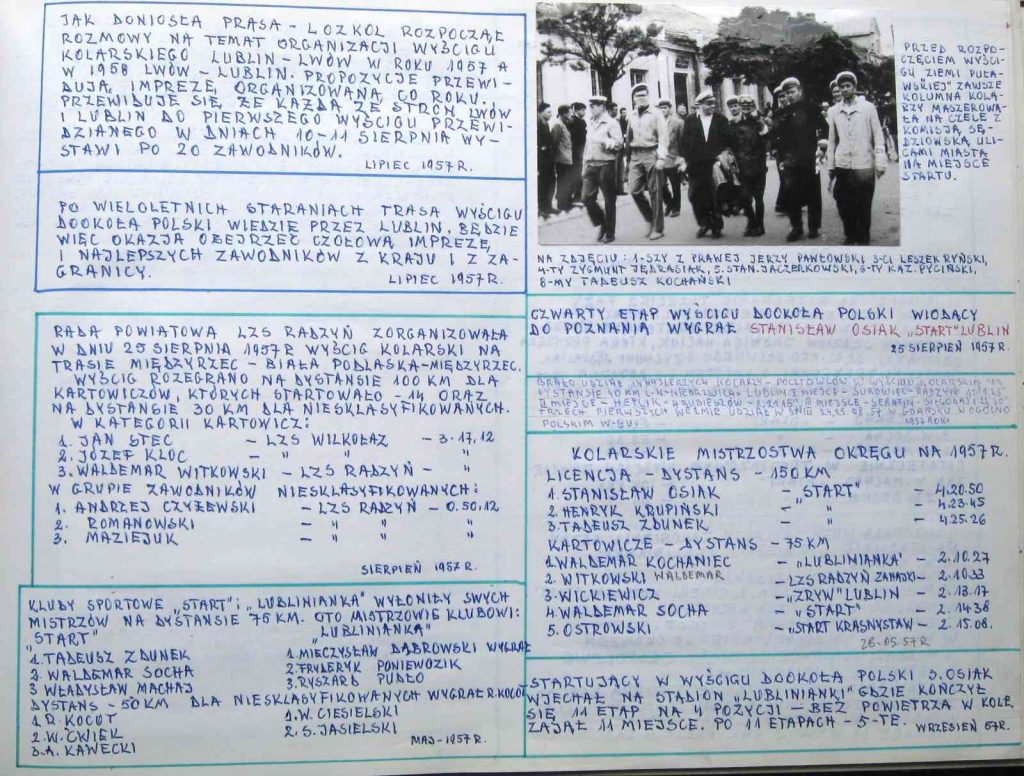 JAK DONIOSŁA PRASA – LOZKOL ROZPOCZĄŁ
ROZMOWY NA TEMAT ORGANIZACJI WYŚCIGU
KOLARSKIEGO LUBLIN–LWÓW W ROKU 1957 A
W 1958 LWÓW – LUBLIN. PROPOZYCJE PRZEWI-
DUJĄ IMPREZĘ ORGANIZOWANĄ CO ROKU.
PRZEWIDUJE SIĘ, ŻE KAŻDA ZE STRON LWÓW
I LUBLIN DO PIERWSZEGO WYŚCIGU PRZEWI-
DZIANEGO W DNIACH 10–11 SIERPNIA WY-
STAWI PO 20 ZAWODNIKÓW.
LIPIEC 1957 R.
PO WIELOLETNICH STARANIACH TRASA WYŚCIGU
DOOKOŁA POLSKI WIEDZIE PRZEZ LUBLIN. BĘDZIE
WIĘC OKAZJA OBEJRZEĆ CZOŁOWĄ IMPREZĘ
I NAJLEPSZYCH ZAWODNIKÓW Z KRAJU I Z ZA-
GRANICY.
LIPIEC 1957 R.
RADA POWIATOWA LZS RADZYŃ ZORGANIZOWAŁA
W DNIU 25 SIERPNIA 1957 R WYŚCIG KOLARSKI NA
TRASIE MIĘDZYRZEC – BIAŁA PODLASKA–MIĘDZYRZEC.
WYŚCIG ROZEGRANO NA DYSTANSIE 100 KM DLA
KARTOWICZÓW, KTÓRYCH STARTOWAŁO – 14 ORAZ
NA DYSTANSIE 30 KM DLA NIESKLASYFIKOWANYCH.
W KATEGORII KARTOWICZ:
1. JAN STEC – LZS WILKOŁAZ – 3.17,12
2. JÓZEF KLOC – " " "
3. WALDEMAR WITKOWSKI – LZS RADZYŃ – "
W GRUPIE ZAWODNIKÓW NIESKLASYFIKOWANYCH:
1. ANDRZEJ CZYŻEWSKI – LZS RADZYŃ – 0.50.12
2. ROMANOWSKI – " " "
3. MAZIEJUK – " " "
SIERPIEŃ 1957 R.
KLUBY SPORTOWE „START" i „LUBLINIANKA" WYŁONIŁY SWYCH
MISTRZÓW NA DYSTANSIE 75 KM. OTO MISTRZOWIE KLUBOWI:
"START"
1. TADEUSZ ZDUNEK
2. WALDEMAR SOCHA
3 WŁADYSŁAW MACHAJ
„LUBLINIANKA"
1. MIECZYSŁAW DĄBROWSKI WYGRAŁ
2. FRYDERYK PONIEWOZIK
3. RYSZARD PUDŁO
DYSTANS – 50 KM DLA NIESKLASYFIKOWANYCH WYGRAŁ R. KOCOT
1. R. KOCOT
2. W. ĆWIEK
3. A. KAWECKI
1. W. CIESIELSKI
2. S. JASIELSKI
MAJ – 1957 R.
PRZED ROZPO-
CZĘCIEM WYŚCI-
GU ZIEMI PUŁA-
WSKIEJ" ZAWSZE
KOLUMNA KOLA-
RZY MASZEROWA-
ŁA NA CZELE Z
KOMISJĄ SĘ-
DZIOWSKĄ ULI-
CAMI MIASTA
NA MIEJSCE
STARTU.
NA ZDJĘCIU: 1-SZY Z PRAWEJ JERZY PAWŁOWSKI 3-CI LESZEK RYŃSKI,
4-TY ZYGMUNT JĘDRASIAK, 5. STAN. JACZEŁKOWSKI, 6-TY KAZ. PYCIŃSKI,
8-MY TADEUSZ KOCHAŃSKI
CZWARTY ETAP WYŚCIGU DOOKOŁA POLSKI WIODĄCY
DO POZNANIA WYGRAŁ STANISŁAW OSIAK „START" LUBLIN
25 SIERPIEŃ 1957 R.
BRAŁO UDZIAŁ 14 NAJLEPSZYCH KOLARZY – POCZTOWCÓW W WYŚCIGU KOLARSKIM NA
DYSTANSIE 40 KM
TRZECH PIERWSZYCH WEŹMIE UDZIAŁ W DNIU W GDAŃSKU W OGÓLNO
POLSKIM
1957 ROKU
KOLARSKIE MISTRZOSTWA OKRĘGU NA 1957 R.
LICENCJA – DYSTANS – 150 KM
1. STANISŁAW OSIAK – „START" – 4.20.50
2. HENRYK KRUPIŃSKI – " – 4.23.45
3. TADEUSZ ZDUNEK – " – 4.25.26
KARTOWICZE – DYSTANS – 75 KM
1. WALDEMAR KOCHANIEC – „LUBLINIANKA" – 2.10.27
2. WITKOWSKI WALDEMAR – LZS RADZYŃ ZAHAJKI – 2.10.33
3. WICKIEWICZ – „ZRYW" LUBLIN – 2.13.17
4. WALDEMAR SOCHA – „START" – 2.14.38
5. OSTROWSKI – „START KRASNYSTAW – 2.15.08.
26.05.57 R
STARTUJĄCY W WYŚCIGU DOOKOŁA POLSKI S. OSIAK
WJECHAŁ NA STADION „LUBLINIANKI" GDZIE KOŃCZYŁ
SIĘ 11 ETAP NA 4 POZYCJI – BEZ POWIETRZA W KOLE,
ZAJĄŁ 11 MIEJSCE. PO 11 ETAPACH – 5-TE. WRZESIEŃ 57R.